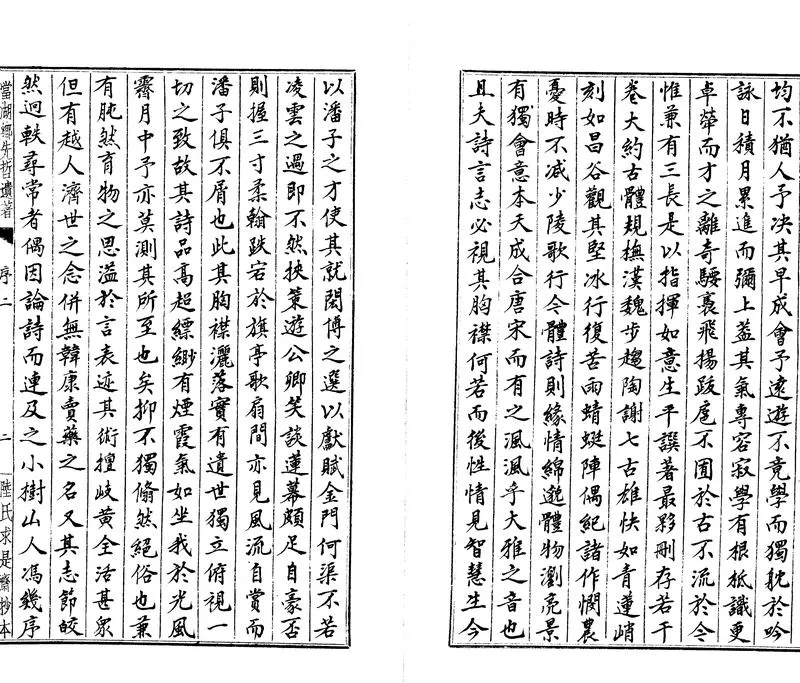 均不猶人予决其早成會予遠遊不竟學而獨躭於吟
詠日積月累進而彌上葢其氣專容寂學有根柢識更
卓犖而才之離奇騕褭飛揚跋扈不囿於古不流於今
惟兼有三長是以指揮如意生平譔著最夥刪存若干
卷大約古體規橅漢魏步趨陶謝七古雄快如青蓮峭
刻如昌谷觀其堅冰行復苦雨蜻蜓陣偶紀諸作憫農
憂時不减少陵歌行今體詩則緣情綿邈體物瀏亮景
有獨會意本天成合唐宋而有之渢渢乎大雅之音也
且夫詩言志必視其胸襟何若而後性情見智慧生今
以潘子之才使其就閎博之選以獻賦金門何渠不若
凌雲之遇即不然挾策遊公卿笑談蓮幕頗足自豪否
則握三寸柔翰跌宕於旗亭歌扇間亦見風流自賞而
潘子俱不屑也此其胸襟灑落實有遺世獨立俯視一
切之致故其詩品高超縹緲有煙霞氣如坐我於光風
霽月中予亦莫測其所至也矣抑不獨翛然絕俗也兼
有肫然育物之思溢於言表迹其術擅岐黃全活甚眾
但有越人濟世之念併無韓康賣藥之名又其志節皎
然迥軼尋常者偶因論詩而連及之小樹山人馮幾序
當湖鄉先哲遺著
序二
二
陸氏求是齋抄本